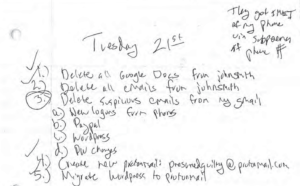 They got SHIT
at my phone
via Subpoenas
at phone #
Tuesday 21st
1.) Delete all Google Docs from johnsmith
2.) Delete all emails from johnsmith
3.) Delete suspicious emails from my gmail
a.) New logins from phones
b.) Paypal
c.) Wordpress
d.) PW changes
4.) Create new protonmail: pressmeguilty@protonmail.com
5.) Migrate Wordpress to protonmail